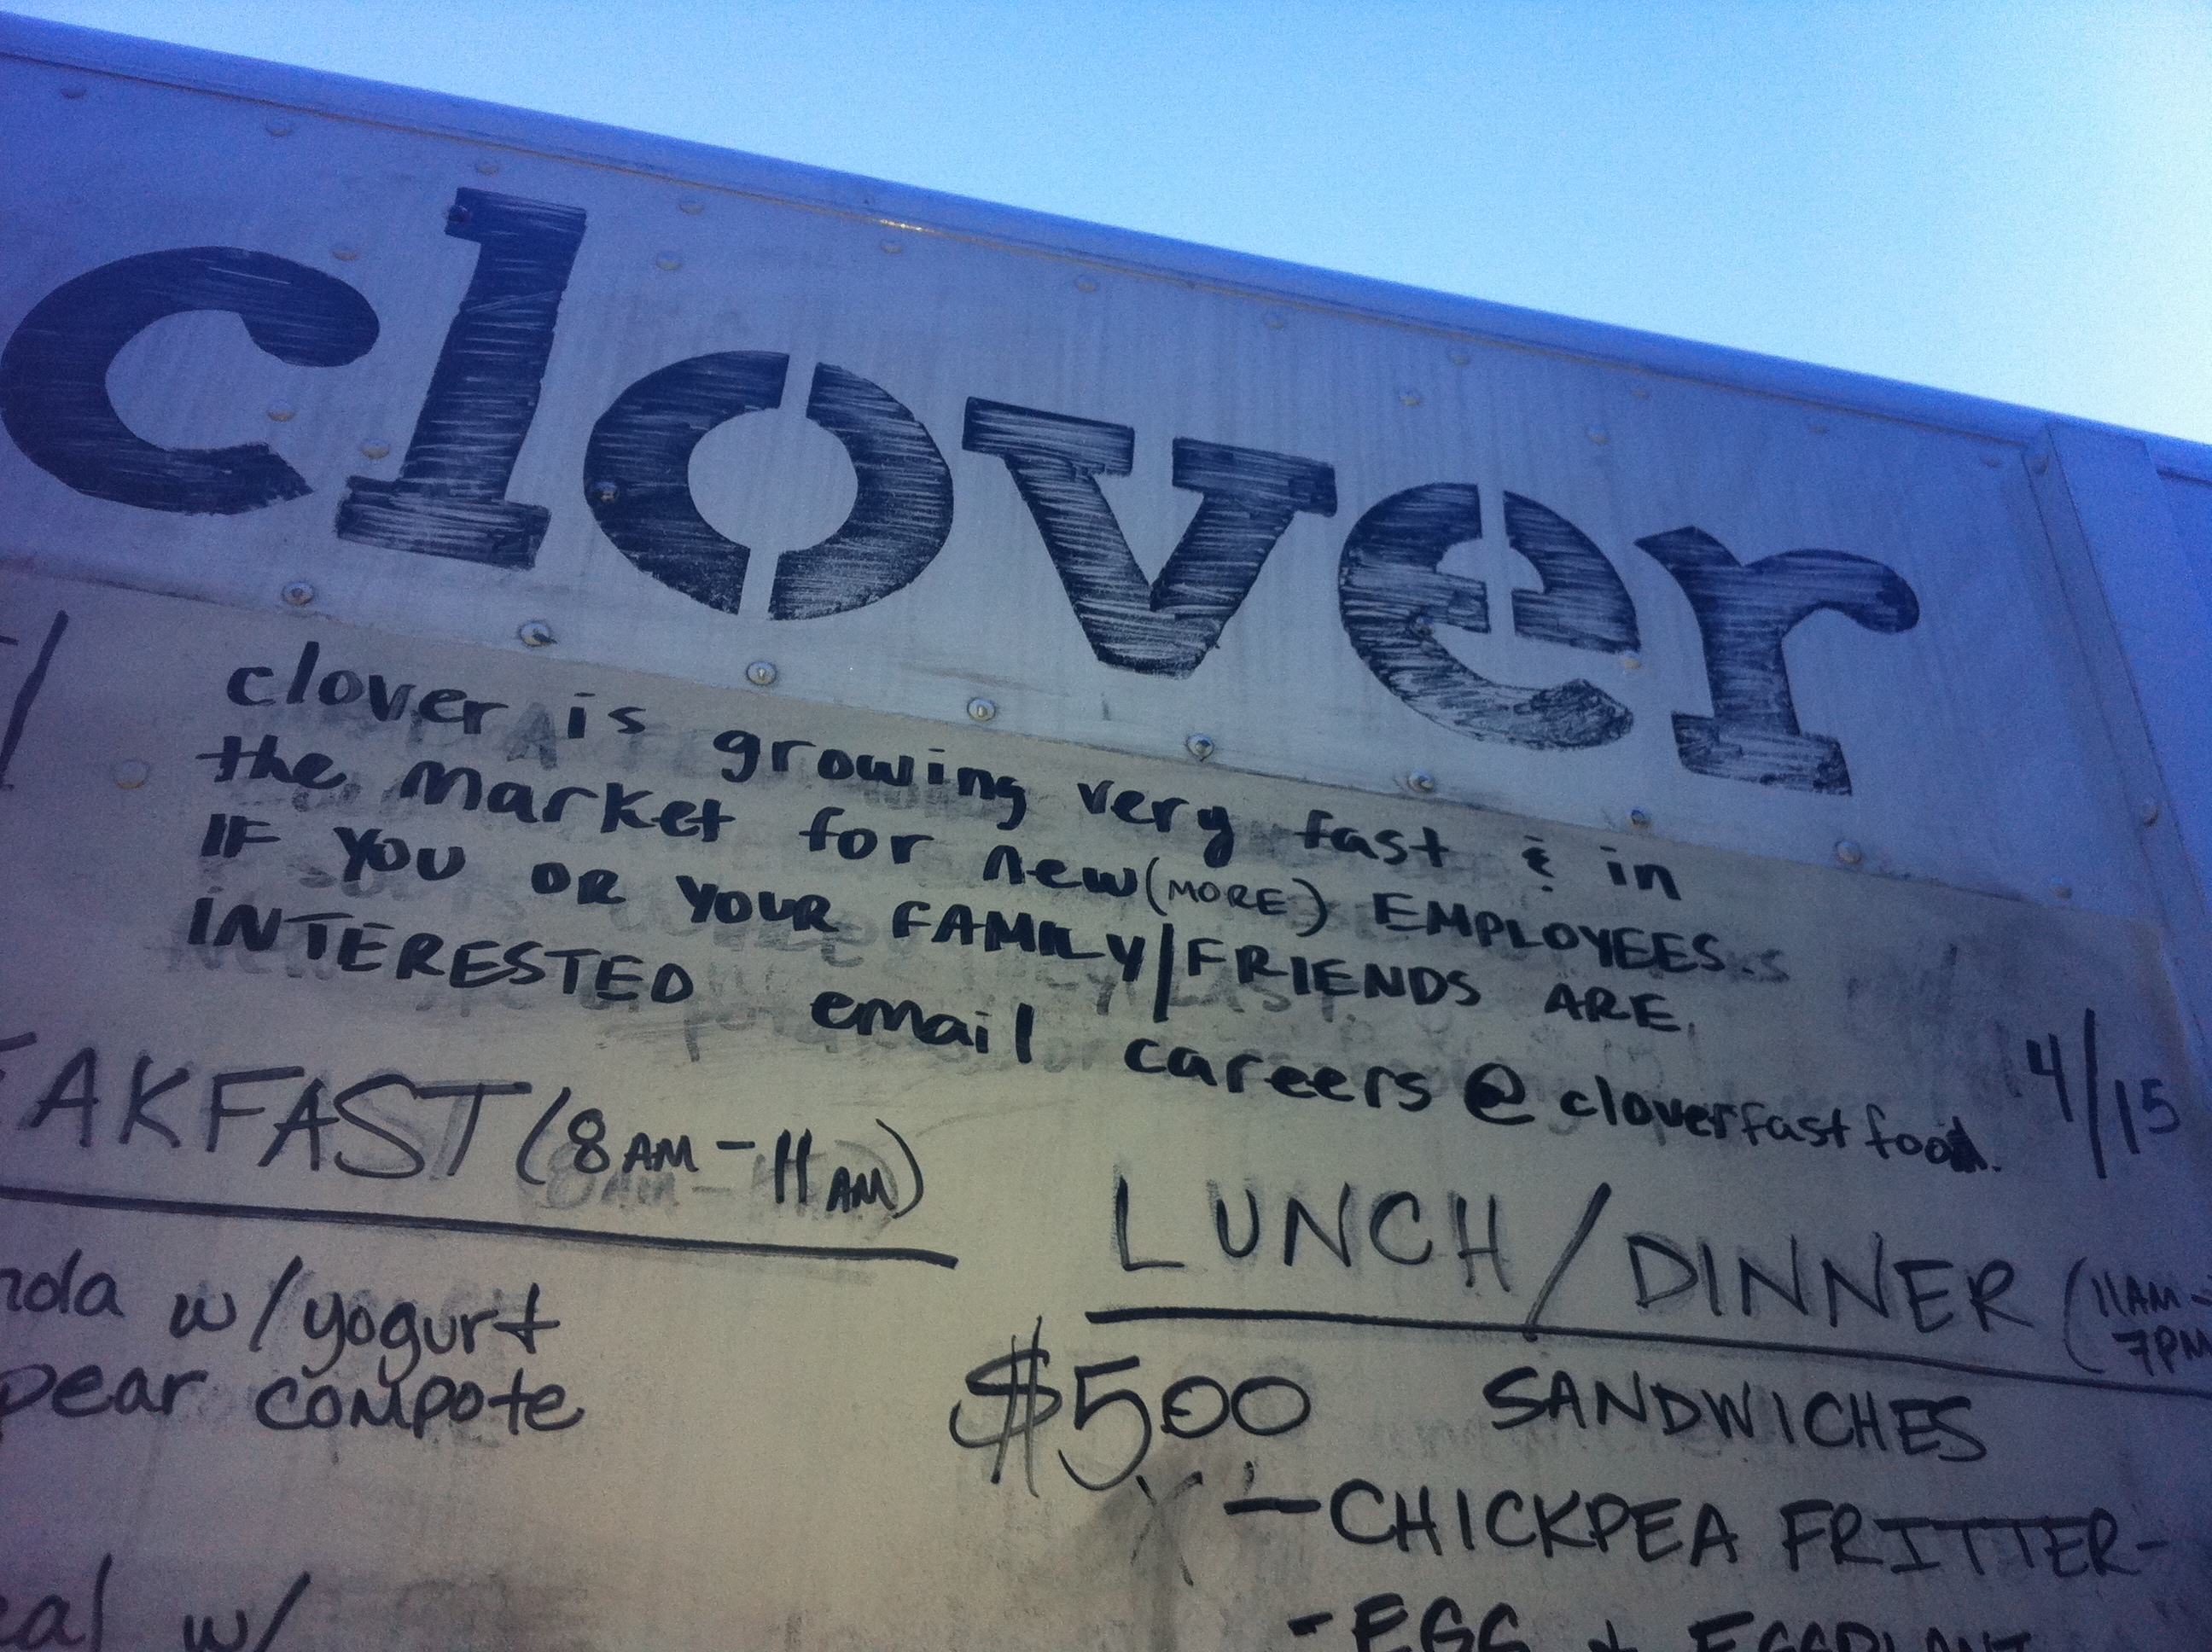 clover
clover is growing very fast & in
the market for new (MORE) EMPLOYEES.
IF YOU OR YOUR FAMILY/FRIENDS ARE
INTERESTED email careers@cloverfastfood.
4/15
AKFAST (8AM-11AM)
nola w/yogurt
pear compote
eal w/
LUNCH/DINNER (11AM-
7PM
$5.00 SANDWICHES
- CHICKPEA FRITTER-
- EGG & EGGPLANT